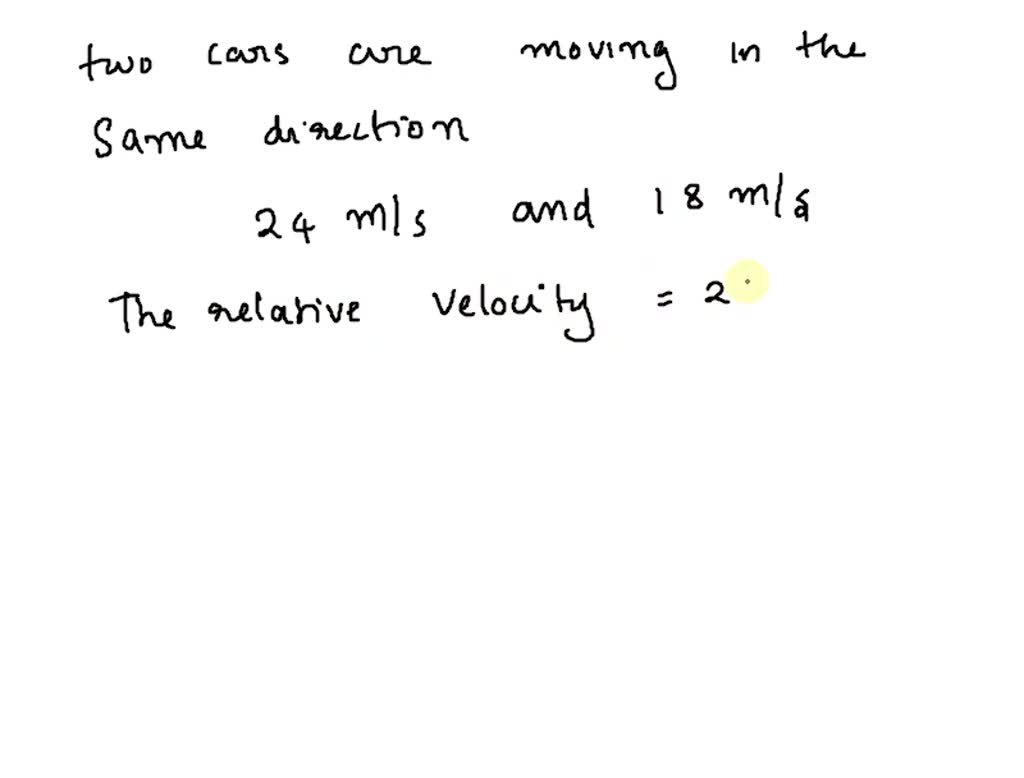 two cars are moving in the
Same direction
24 m/s and 18 m/s
The relative velocity = 2